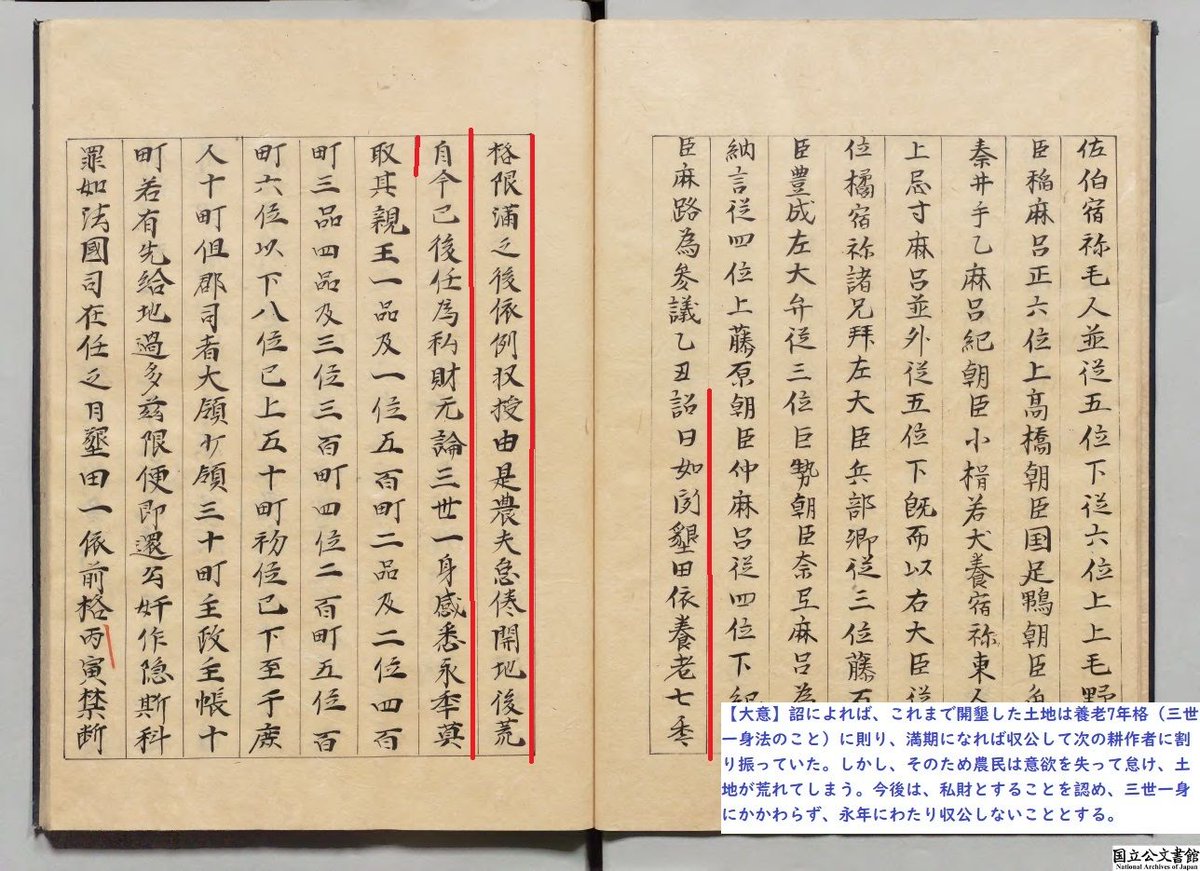 佐伯宿祢毛人並従五位下従六位上上毛野
臣稲麻呂正六位上高橋朝臣国足鴨朝臣
秦井手乙麻呂紀朝臣小楫若犬養宿祢東人
上忌寸麻呂並外従五位下既而以右大臣従
位橘宿祢諸兄拝左大臣兵部卿従三位藤
臣豊成左大弁従三位巨勢朝臣奈弖麻呂為
納言従四位上藤原朝臣仲麻呂従四位下紀
臣麻路為参議乙丑詔曰如聞墾田依養老七年
格限満之後依例収授由是農夫怠倦開地後荒
自今已後任為私財无論三世一身感悉永年莫
取其親王一品及一位五百町二品及二位四百
町三品四品及三位三百町四位二百町五位百
町六位以下八位已上五十町初位已下至于庶
人十町但郡司者大領少領三十町主政主帳十
町若有先給地過多茲限便即還公奸作隠斯科
罪如法國司在任之日墾田一依前格丙寅禁断
【大意】詔によれば、これまで開墾した土地は養老7年格（三世
一身法のこと）に則り、満期になれば収公して次の耕作者に割
り振っていた。しかし、そのため農民は意欲を失って怠け、土
地が荒れてしまう。今後は、私財とすることを認め、三世一身
にかかわらず、永年にわたり収公しないこととする。
国立公文書館
National Archives of Japan